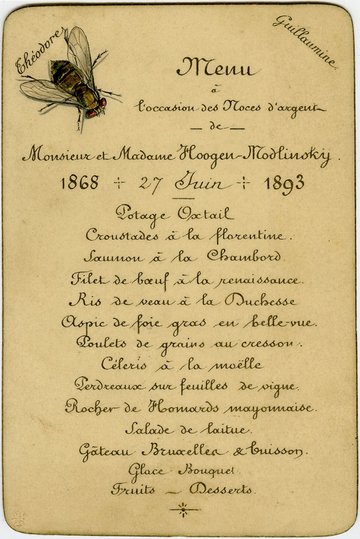 Théodore
Guillaumine
Menu
à
l'occasion des Noces d'argent
— de —
Monsieur et Madame Hoogen-Modlinskij.
1868 ÷ 27 Juin ÷ 1893
Potage Oxtail
Croustades à la florentine.
Saumon à la Chambord
Filet de bœuf à la renaissance.
Ris de veau à la Duchesse
Aspic de foie gras en belle-vue.
Poulets de grains au cresson.
Céleris à la moëlle
Perdreaux sur feuilles de vigne.
Rocher de Homards mayonnaise.
Salade de laitue.
Gâteau Bruxelles & buisson.
Glace Bouquet
Fruits — Desserts.